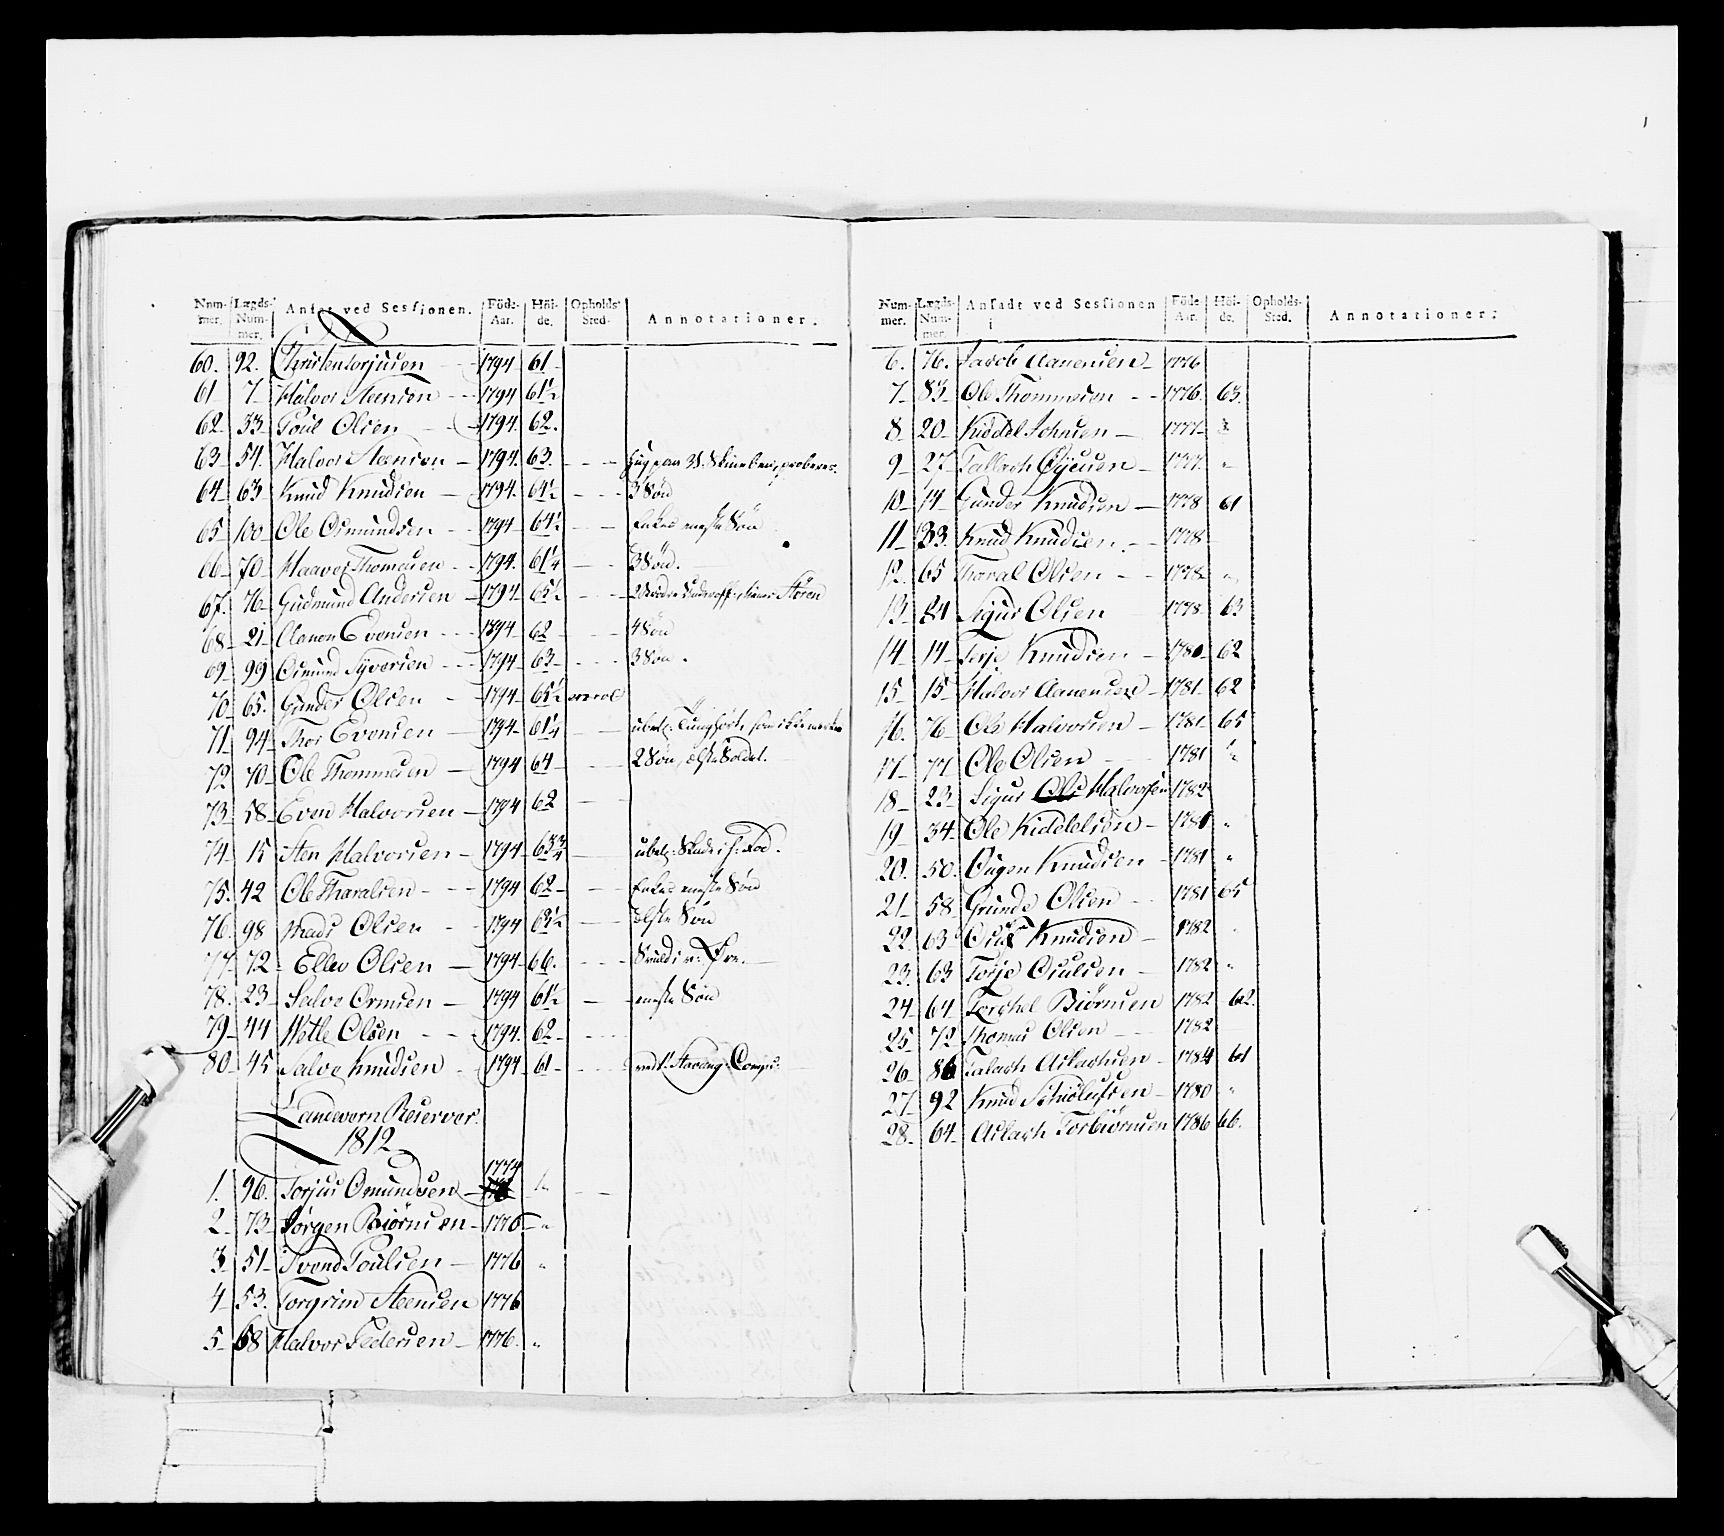 Num- Lægds- Ansat ved Sessionen. Föde- Höi- Opholds- Annotationer.
mer. Num- i Aar. de. Sted.
mer.
60. 92. Christen Torjusen 1794 61
61 7 Halvor Steensen 1794 61½
62 33 Poul Olsen 1794. 62.
63 54. Halvor Steensen 1794. 63.
64 63 Knud Knudsen 1794. 64½ 3 Søn
65 100 Ole Osmundsen 1794 64½ Enkes eneste Søn
66 70 Haavor Thomesen 1794. 61¼ 3 Søn.
67. 76 Gudmund Andersen 1794 65½
68 21 Aanon Evensen 1794 62 4 Søn
69 99 Osmund Syversen 1794 63 3 Søn.
70 65. Gunder Olsen 1794 65½
71 94 Thor Evensen 1794 61¼
72 70 Ole Thommesen 1794 64 2 Søn, ælste Soldat.
73 58 Even Halvorsen 1794 62
74 15 Sten Halvorsen 1794 63¾ ubeh: Skade i h: Fod.
75. 42 Ole Tharalsen 1794 62 Enkes eneste Søn
76. 98 Mads Olsen 1794 63½ ælste Søn
77. 72 Ellev Olsen 1794 66.
78. 23 Salve Ormsen 1794 61½ eneste Søn
79 44 Wetle Olsen 1794. 62
80 45 Salve Knudsen 1794 61
Landeværn Reserver.
1812
1. 96. Torjus Omundsen 1774 "
2 73 Jörgen Biörnsen 1776 "
3 51 Svend Poulsen 1776 "
4 53. Torgrim Steensen 1776
5 68 Halvor Pedersen 1776. "
Num- Lægds- Ansadt ved Sessionen Föde Höi- Opholds- Annotationer:
mer. Num- i Aar. de. Sted.
mer
6. 76. Jacob Aanensen 1776
7 83 Ole Thommesen 1776. 63.
8 20 Kiddel Johnsen 1777 "
9 27 Tallach Øysen 1777 "
10 14 Gunder Knudsen 1778 61
11 33. Knud Knudsen 1778
12. 65 Thoral Olsen 1778 "
13 84 Sigur Olsen 1778 63
14 14 Terje Knudsen 1780 62
15 15 Halvor Aanensen 1781 62
16. 76 Ole Halvorsen 1781 65
17 77 Ole Olsen 1781 "
18 23 Sigur Halvorsen 1782
19 34 Ole Kiddelsen 1781 "
20. 50. Ougen Knudsen 1781 "
21 58 Grunde Olsen 1781 65
22. 63 Knudsen 1782
23. 63 Torje Osulsen 1782 "
24 64 Terchel Biörnsen 1782 62.
25 72 Thomas Olsen 1782
26 86 Talach Aslachsen 1784 61
27 92 Knud 1780 "
28 64 Aslach Torbiörnsen 1786 66.